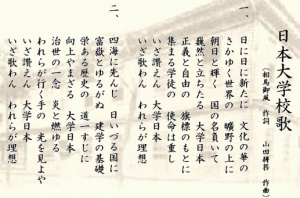 日本大学校歌
(相馬御風 作詞 山田耕筰 作曲)
一、
日に日に新たに 文化の華の
さかゆく世界の 曠野の上に
朝日と輝く 国の名負いて
巍然と立ちたる 大学日本
正義と自由の 旗標のもとに
集まる学徒の 使命は重し
いざ讃えん 大学日本
いざ歌わん われらが理想
二、
四海に先んじ 日いづる国に
富嶽とゆるがぬ 建学の基礎
栄ある歴史の 道一すじに
向上やまざる 大学日本
治世の一念 炎と燃ゆる
われらが行く手の 光を見よや
いざ讃えん 大学日本
いざ歌わん われらが理想